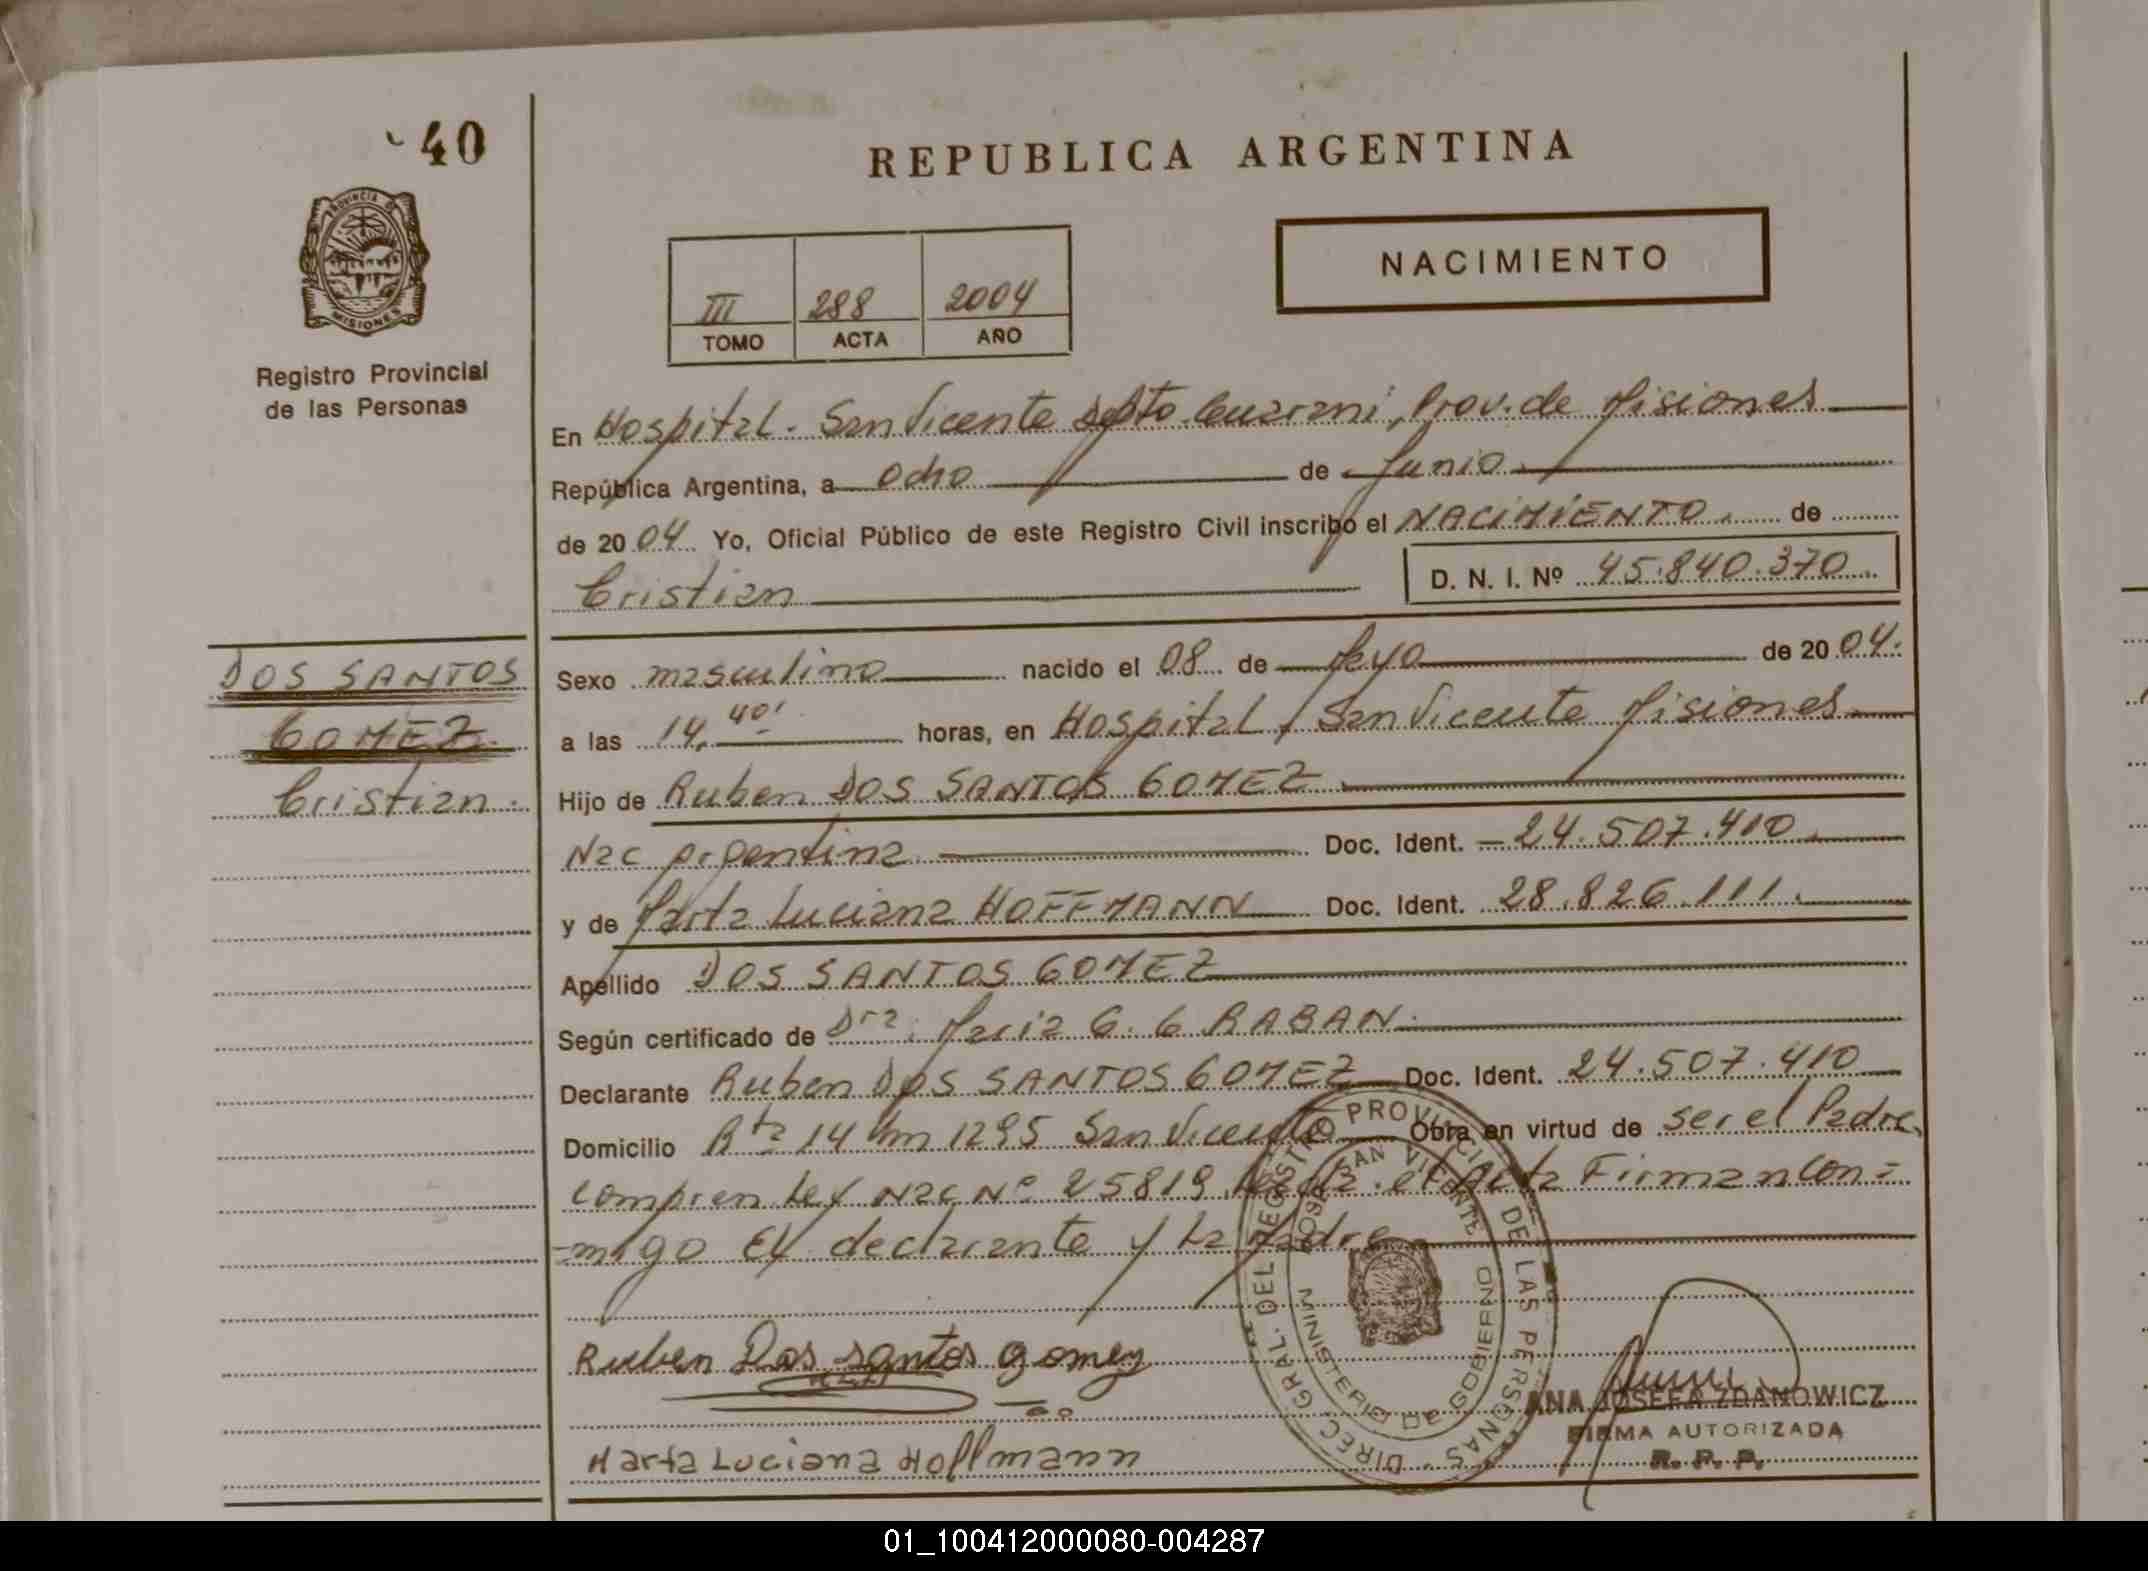 40
REPUBLICA ARGENTINA
PROVINCIA DE
MISIONES
NACIMIENTO
III 288 2004
TOMO ACTA AÑO
Registro Provincial
de las Personas
En Hospital. San Vicente Dpto. Guarani, Prov. de Misiones
República Argentina, a ocho de Junio
de 2004 Yo, Oficial Público de este Registro Civil inscribo el NACIMIENTO de
Cristian D. N. I. Nº 45.840.370
DOS SANTOS
GOMEZ
Cristian.
Sexo masculino nacido el 08 de Mayo de 2004.
a las 14,40' horas, en Hospital, San Vicente Misiones
Hijo de Ruben DOS SANTOS GOMEZ
Nac Argentina Doc. Ident. 24.507.410
y de Marta Luciana HOFFMANN Doc. Ident. 28.826.111.
Apellido DOS SANTOS GOMEZ
Según certificado de Dra. Maria G. G RABAN.
Declarante Ruben DOS SANTOS GOMEZ Doc. Ident. 24.507.410
Domicilio Rta 14 km 1295 San Vicente Obra en virtud de ser el Padre,
Compren Ley Nac Nº 25819 el Acta Firman Con=
=migo El declarante y La Madre
Ruben Dos santos gomez
Marta Luciana Hoffmann
DIREC. GRAL. DEL REGISTRO PROVINCIAL DE LAS PERSONAS
SAN VICENTE
MINISTERIO DE GOBIERNO
ANA JOSEFA ZDANOWICZ
FIRMA AUTORIZADA
R. P. P.
01_100412000080-004287